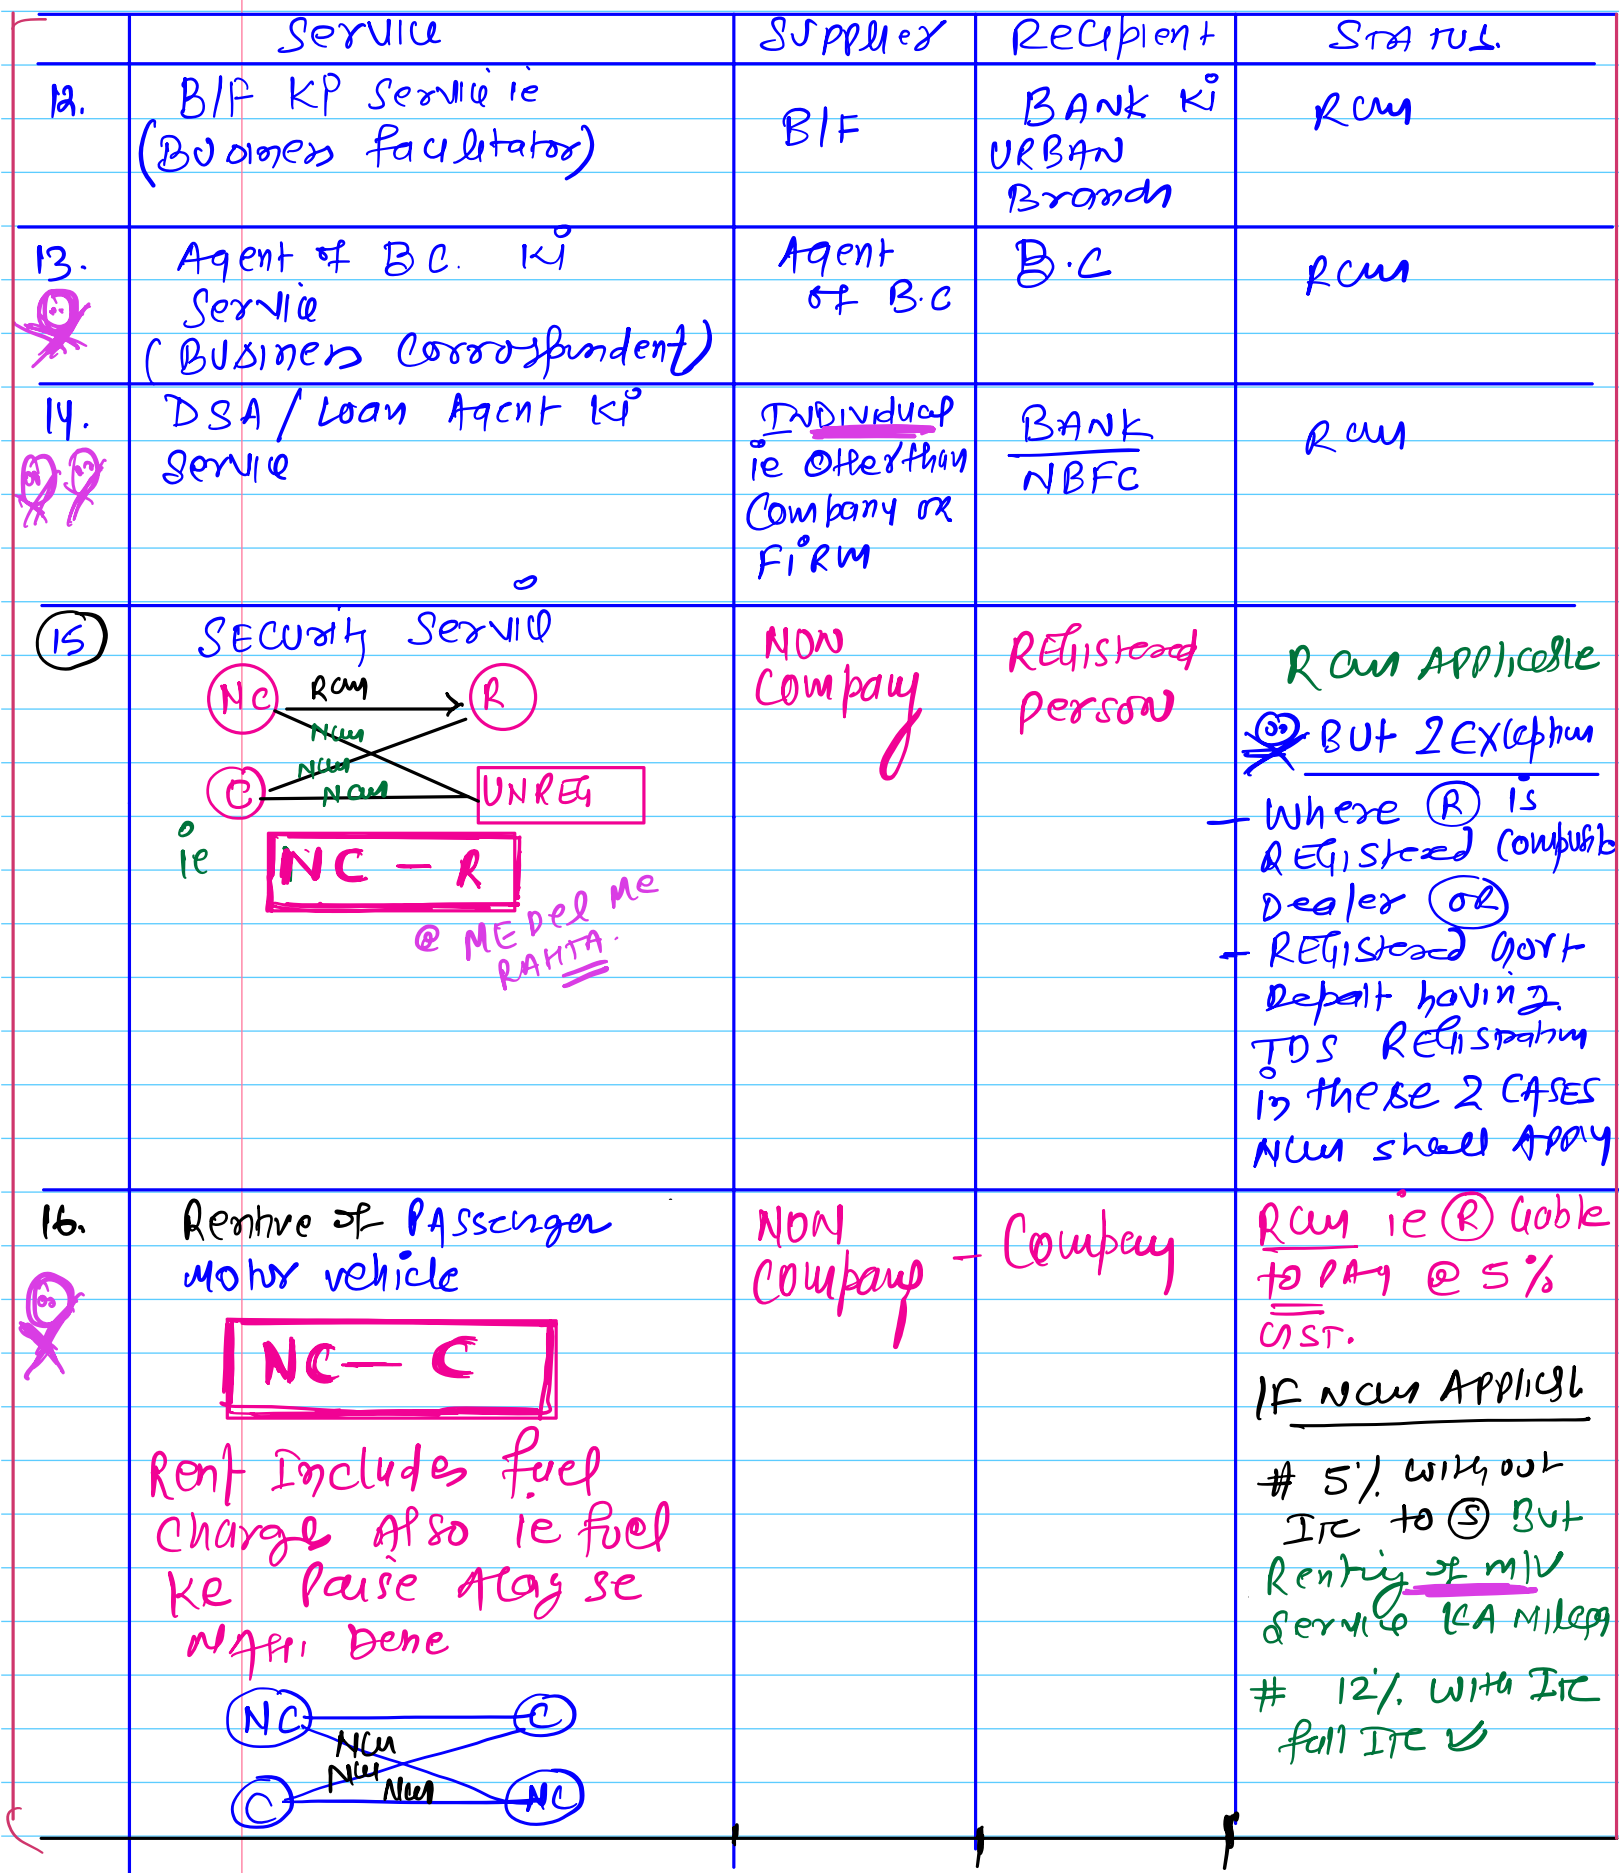 Service Supplier Recipient STATUS.
12. B/F KP Service ie
(Business facilitator)
B/F
BANK Ki
URBAN
Branch
RCM
13. Agent of B.C. Ki
Service
(Business Corrospondent)
Agent
of B.C
B.C
RCM
14. DSA / Loan Agent Ki
Service
INDIVIDUAL
ie Other than
Company OR
FIRM
BANK
NBFC
RCM
15 SECURITY Service
NC RCM R
NCM
NCM
C NCM UNREG
ie NC - R
@ ME Del Me
RAHTA.
NON
Company
REGistered
person
RCM APPLICABLE
BUT 2 Exception
- Where R is
REGIStered Composite
Dealer OR
- REGIStered Govt
Depatt having
TDS REGIStration
in these 2 CASES
NCM shall Apply
16. Renting of PASSenger
Motor vehicle
NC - C
Rent Includes fuel
Charge Also ie fuel
Ke Paise Alag se
NAHI Dene
NC C
NCM
NCM
C NCM NC
NON
Company
- Company
RCM ie R liable
to PAY @ 5%
GST.
IF NCM Applicabl
# 5% without
ITC to S But
Renting of M/V
Service KA Milega
# 12% with ITC
full ITC